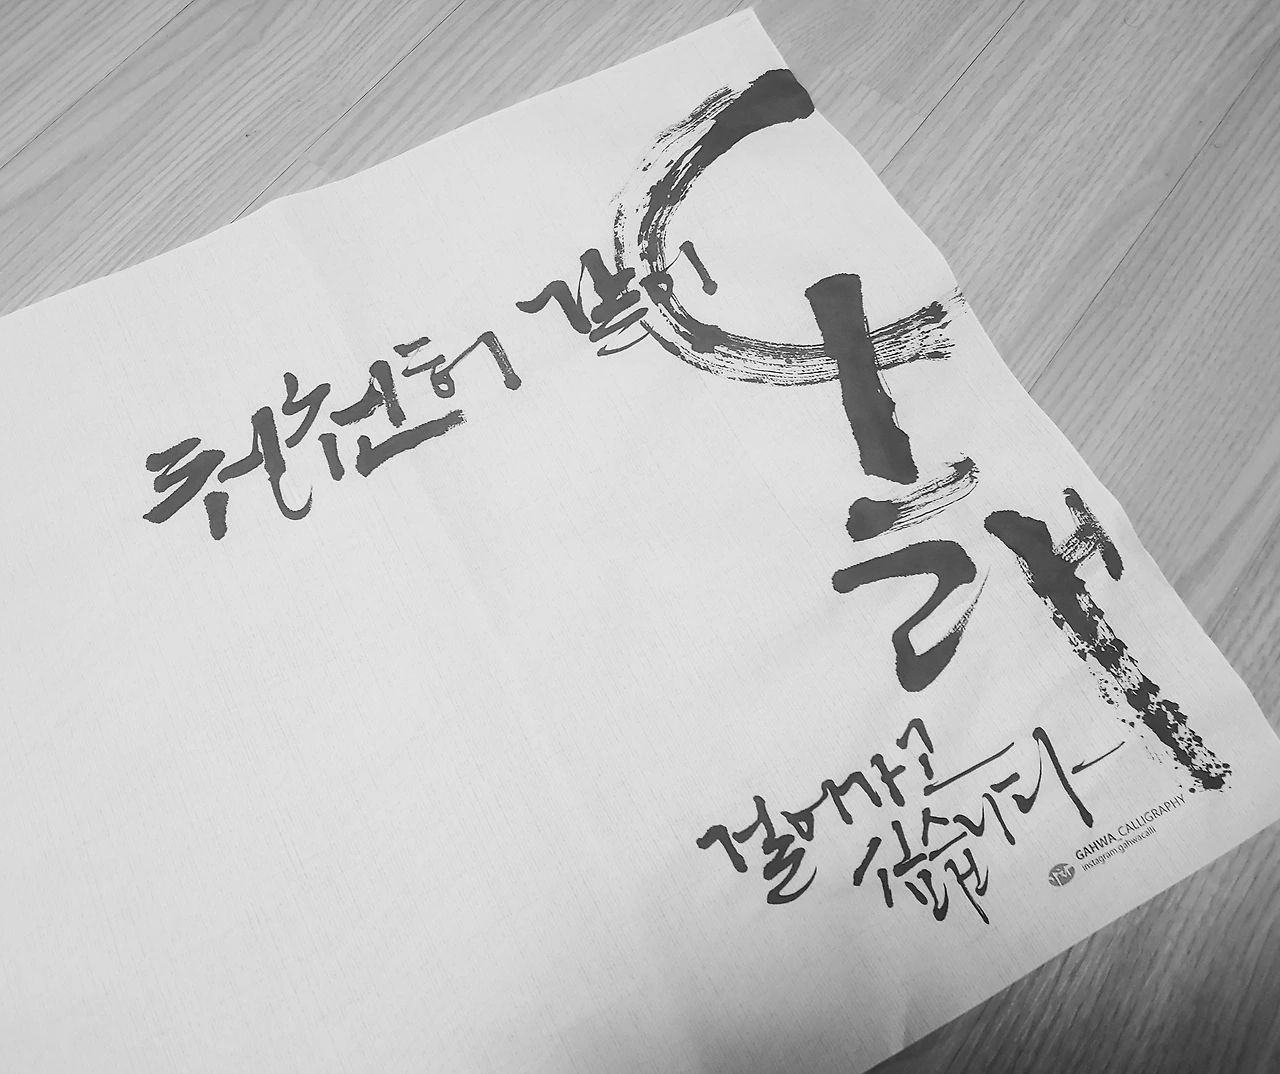 천천히 같이
오래
걸어가고
싶습니다
GAHWA_CALLIGRAPHY
instagram.gahwacalli